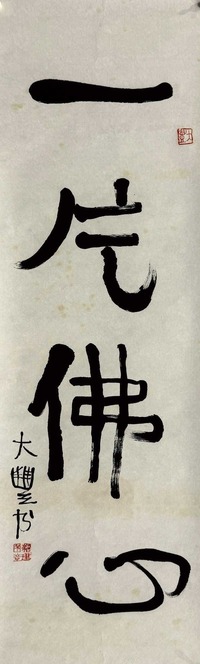 一片佛心
大豐书